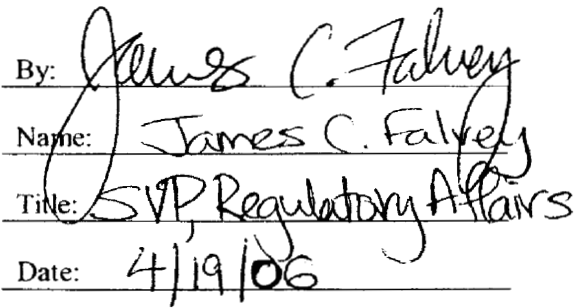 By: James C. Falvey
Name: James C. Falvey
Title: SVP, Regulatory Affairs
Date: 4/19/06